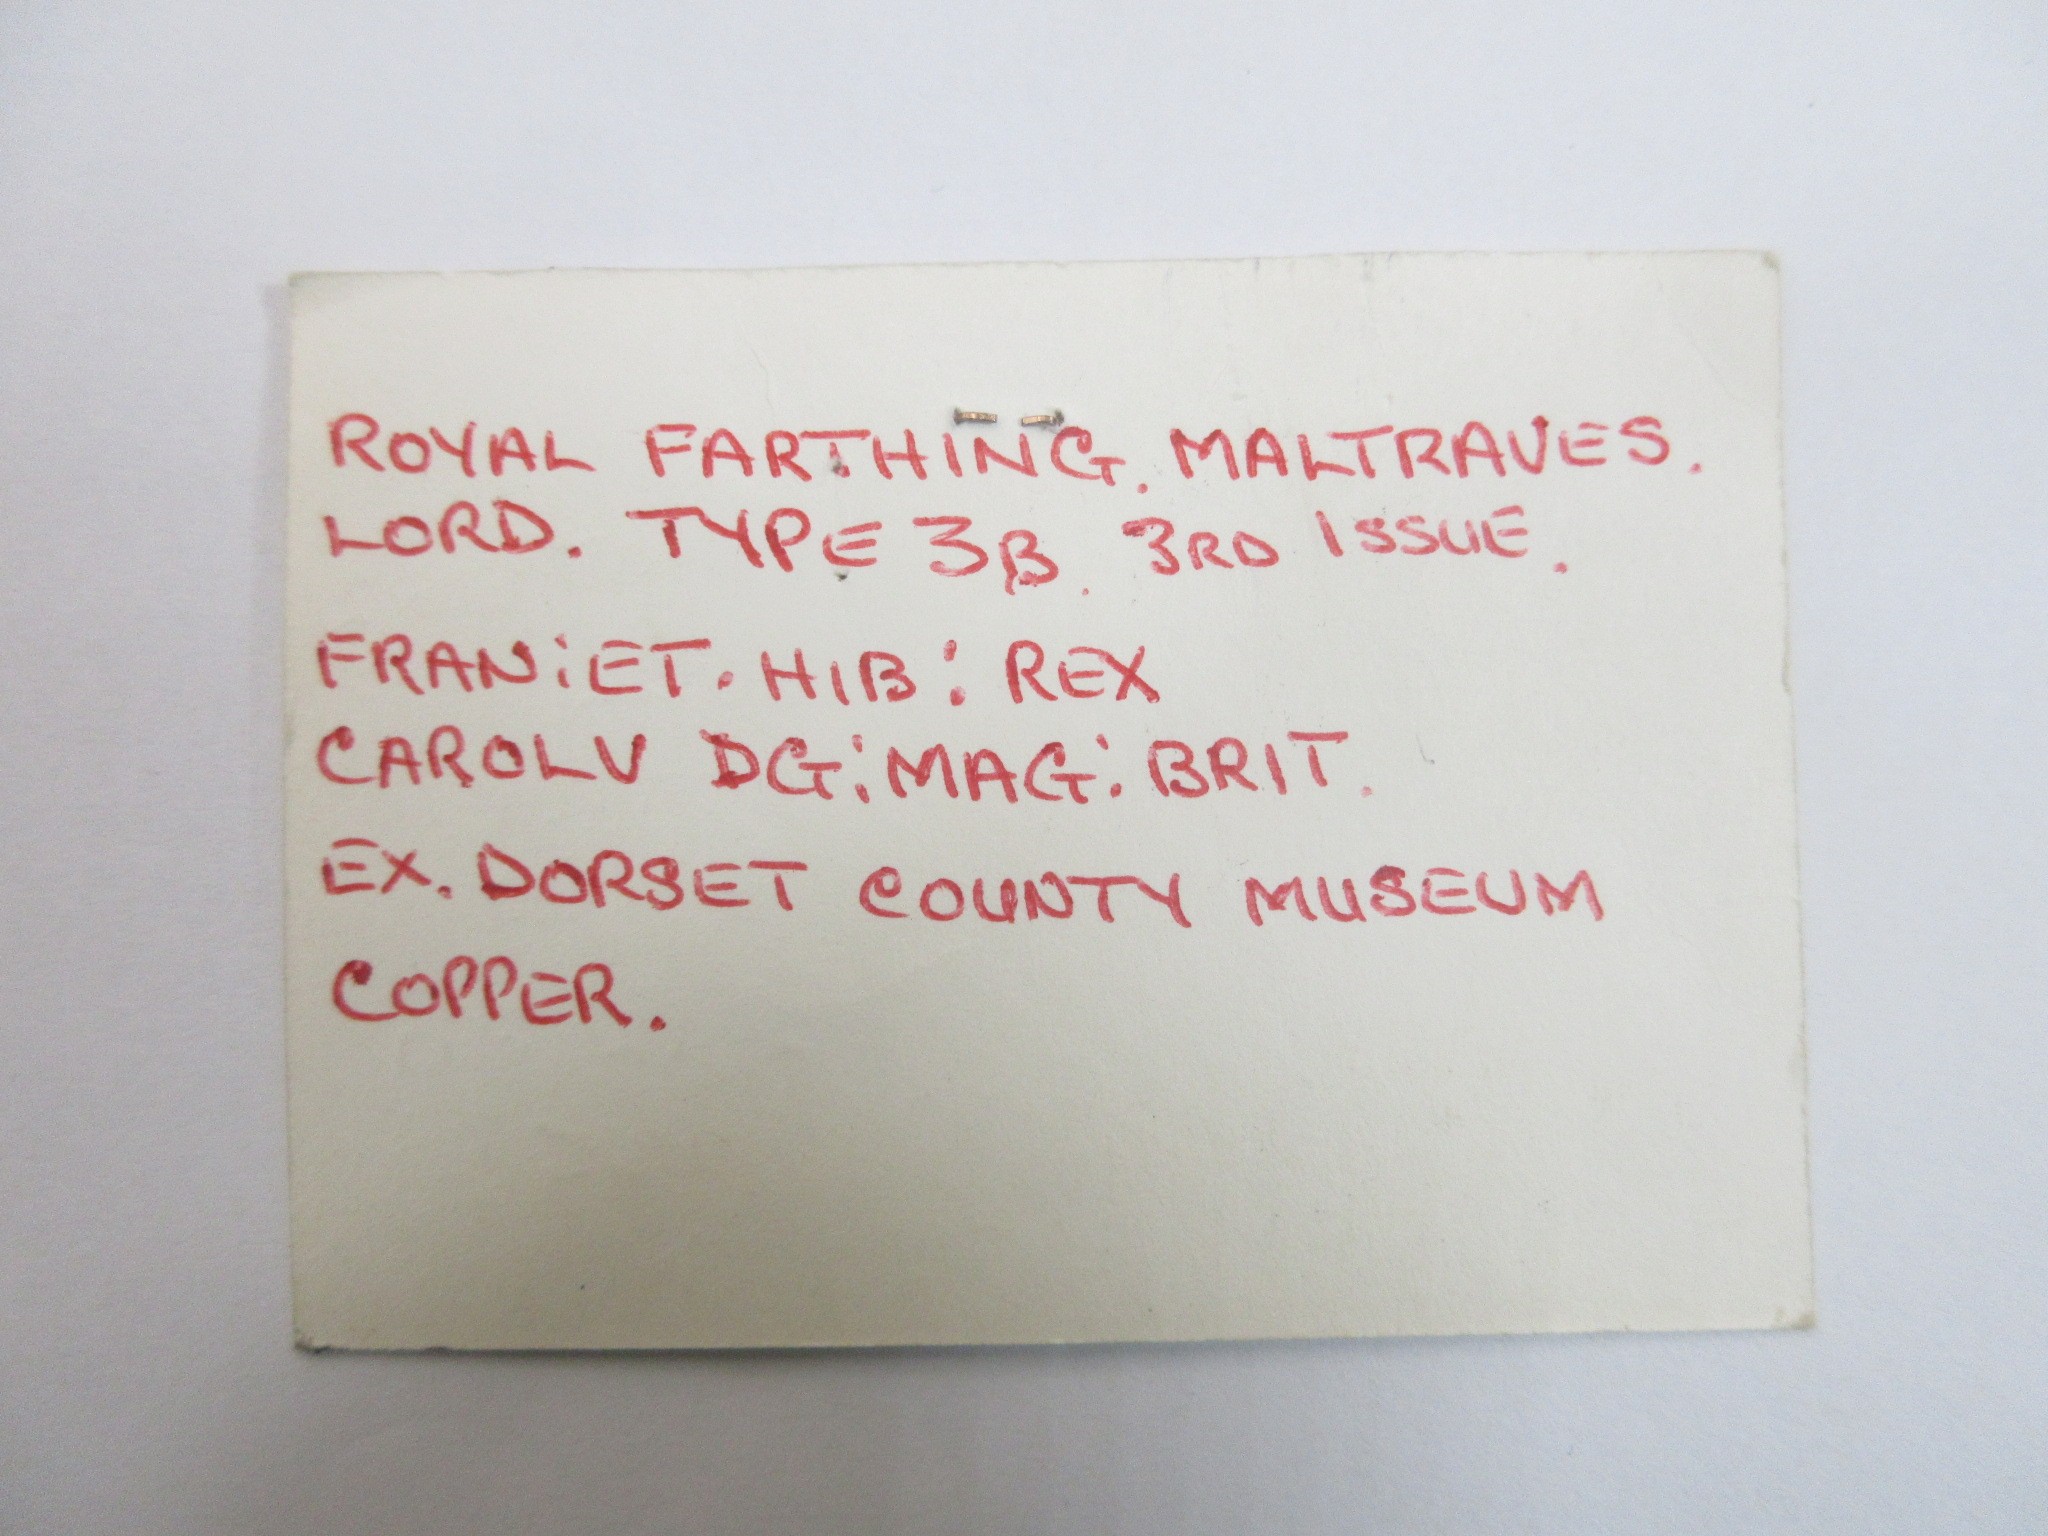 ROYAL FARTHING. MALTRAVES.
LORD. TYPE 3B. 3RD ISSUE.
FRAN:ET. HIB: REX
CAROLV DG:MAG:BRIT.
EX. DORSET COUNTY MUSEUM
COPPER.